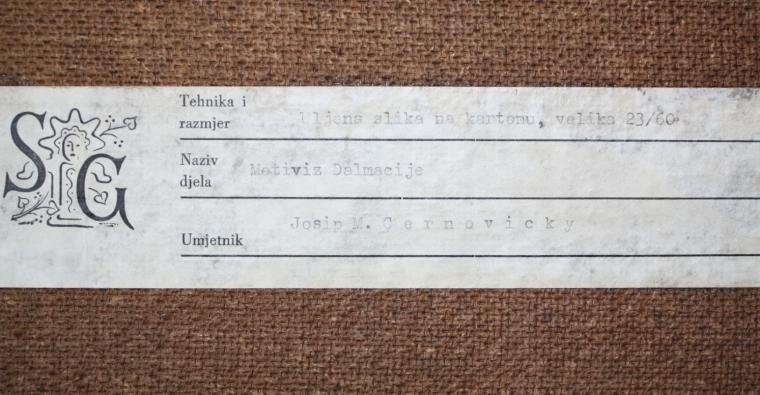 SIG
Tehnika i
razmjer Uljena slika na kartonu, velika 23/60
Naziv
djela Motiviz Dalmacije
Josip M. Cernovicky
Umjetnik